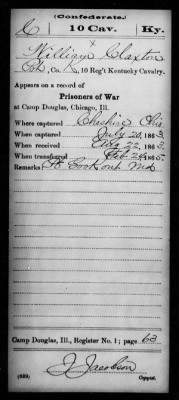 (Confederate.)
C 10 Cav. Ky.
William Claxton
Co. 10 Reg't Kentucky Cavalry.
Appears on a record of
Prisoners of War
at Camp Douglas, Chicago, Ill.
Where captured Cheshire Ohio
When captured July 20, 1863.
When received Aug 22, 1863.
When transferred Feb. 24 1865.
Remarks Pt. Lookout Md
Camp Douglas, Ill., Register No. 1; page 63
J. Jacobson
(639) Copyist.